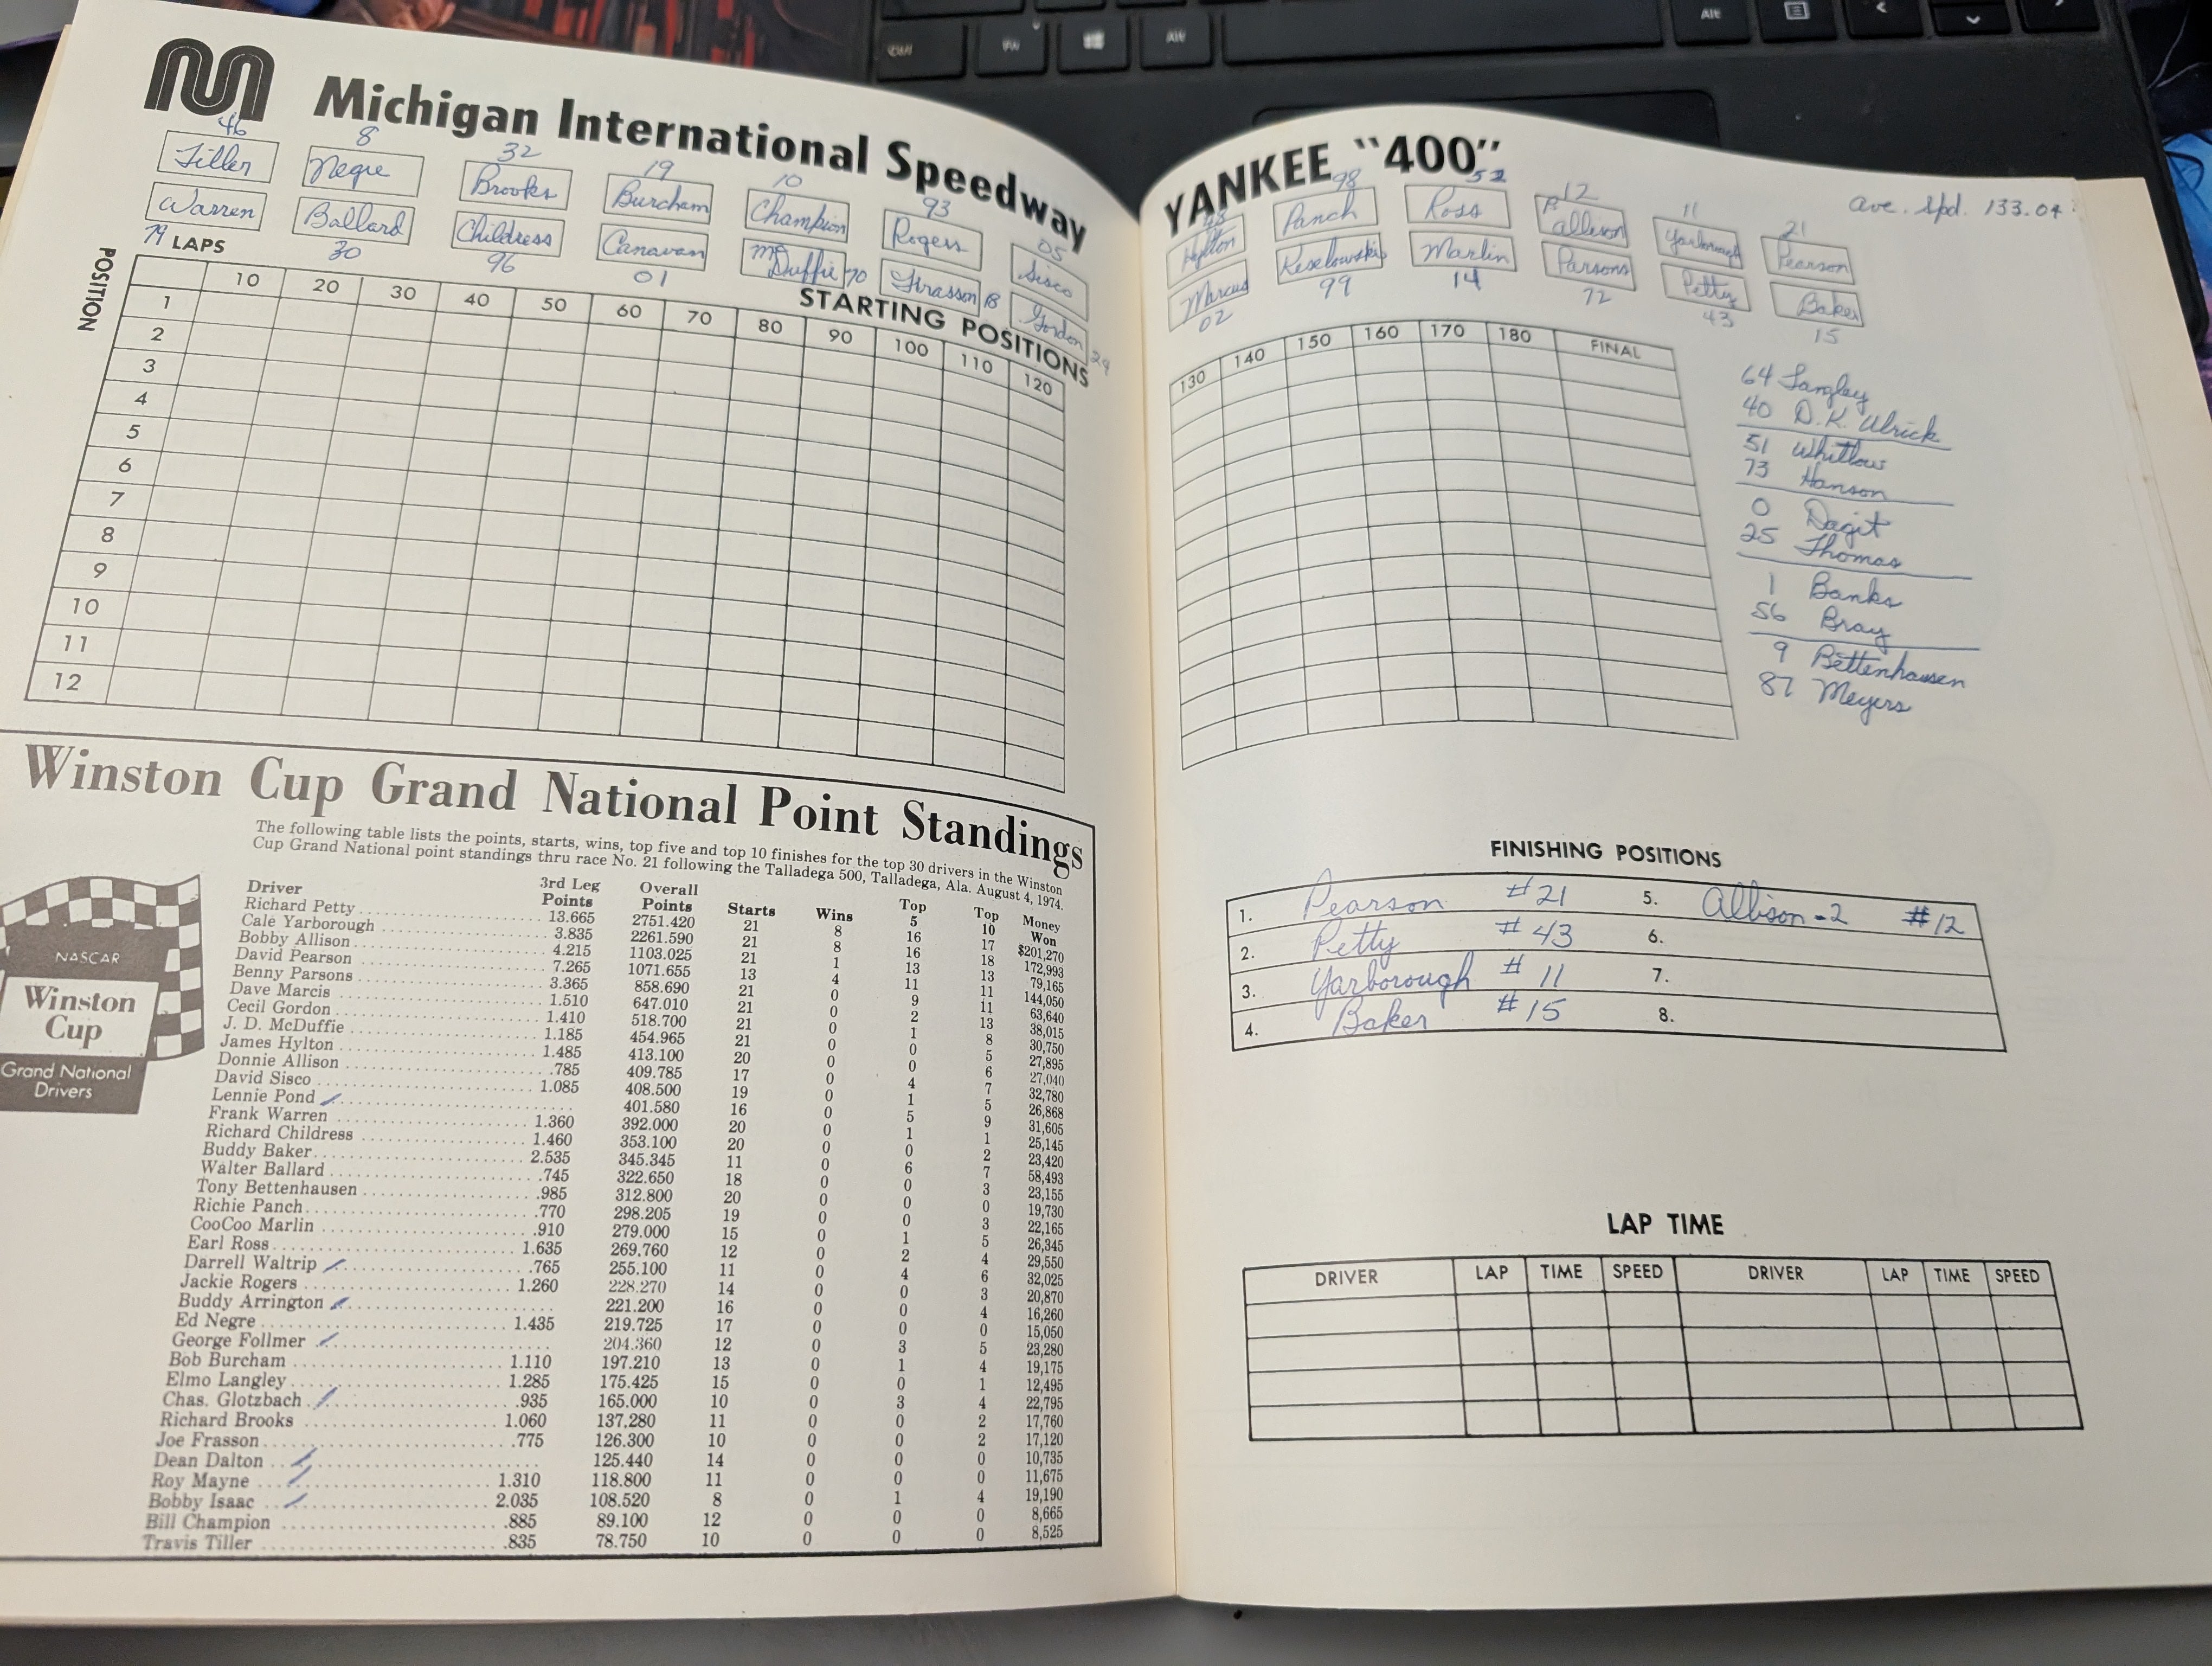 Ctrl
Fn
Alt
Alt
Michigan International Speedway
46 8 32 19 10 93 05
Tiller Negre Brooks Burcham Champion Rogers Sisco
Warren Ballard Childress Canavan McDuffie 70 Frasson 18 Gordon 24
79 30 96 01
LAPS
POSITION
STARTING POSITIONS
10 20 30 40 50 60 70 80 90 100 110 120
1
2
3
4
5
6
7
8
9
10
11
12
Winston Cup Grand National Point Standings
The following table lists the points, starts, wins, top five and top 10 finishes for the top 30 drivers in the Winston
Cup Grand National point standings thru race No. 21 following the Talladega 500, Talladega, Ala. August 4, 1974.
NASCAR
Winston
Cup
Grand National
Drivers
Driver 3rd Leg Points Overall Points Starts Wins Top 5 Top 10 Money Won
Richard Petty 13.665 2751.420 21 8 16 17 $201,270
Cale Yarborough 3.835 2261.590 21 8 16 18 172,993
Bobby Allison 4.215 1103.025 21 1 13 13 79,165
David Pearson 7.265 1071.655 13 4 11 11 144,050
Benny Parsons 3.365 858.690 21 0 9 11 63,640
Dave Marcis 1.510 647.010 21 0 2 13 38,015
Cecil Gordon 1.410 518.700 21 0 1 8 30,750
J. D. McDuffie 1.185 454.965 21 0 0 5 27,895
James Hylton 1.485 413.100 20 0 0 6 27,040
Donnie Allison .785 409.785 17 0 4 7 32,780
David Sisco 1.085 408.500 19 0 1 5 26,868
Lennie Pond 401.580 16 0 5 9 31,605
Frank Warren 1.360 392.000 20 0 1 1 25,145
Richard Childress 1.460 353.100 20 0 0 2 23,420
Buddy Baker 2.535 345.345 11 0 6 7 58,493
Walter Ballard .745 322.650 18 0 0 3 23,155
Tony Bettenhausen .985 312.800 20 0 0 0 19,730
Richie Panch .770 298.205 19 0 0 3 22,165
CooCoo Marlin .910 279.000 15 0 1 5 26,345
Earl Ross 1.635 269.760 12 0 2 4 29,550
Darrell Waltrip .765 255.100 11 0 4 6 32,025
Jackie Rogers 1.260 228.270 14 0 0 3 20,870
Buddy Arrington 221.200 16 0 0 4 16,260
Ed Negre 1.435 219.725 17 0 0 0 15,050
George Follmer 204.360 12 0 3 5 23,280
Bob Burcham 1.110 197.210 13 0 1 4 19,175
Elmo Langley 1.285 175.425 15 0 0 1 12,495
Chas. Glotzbach .935 165.000 10 0 3 4 22,795
Richard Brooks 1.060 137.280 11 0 0 2 17,760
Joe Frasson .775 126.300 10 0 0 2 17,120
Dean Dalton 125.440 14 0 0 0 10,735
Roy Mayne 1.310 118.800 11 0 0 0 11,675
Bobby Isaac 2.035 108.520 8 0 1 4 19,190
Bill Champion .885 89.100 12 0 0 0 8,665
Travis Tiller .835 78.750 10 0 0 0 8,525
YANKEE "400"
Ave. Spd. 133.04
98 52 12 11 21
Hylton Panch Ross B. Allison Yarborough Pearson
Marcus Keselowski Marlin Parsons Petty Baker
02 99 14 72 43 15
130 140 150 160 170 180 FINAL
64 Langley
40 D.K. Ulrick
51 Whitlow
73 Hanson
0 Dagit
25 Thomas
1 Banks
56 Bray
9 Bettenhausen
87 Meyers
FINISHING POSITIONS
1. Pearson #21 5. Allison -2 #12
2. Petty #43 6.
3. Yarborough #11 7.
4. Baker #15 8.
LAP TIME
DRIVER LAP TIME SPEED DRIVER LAP TIME SPEED